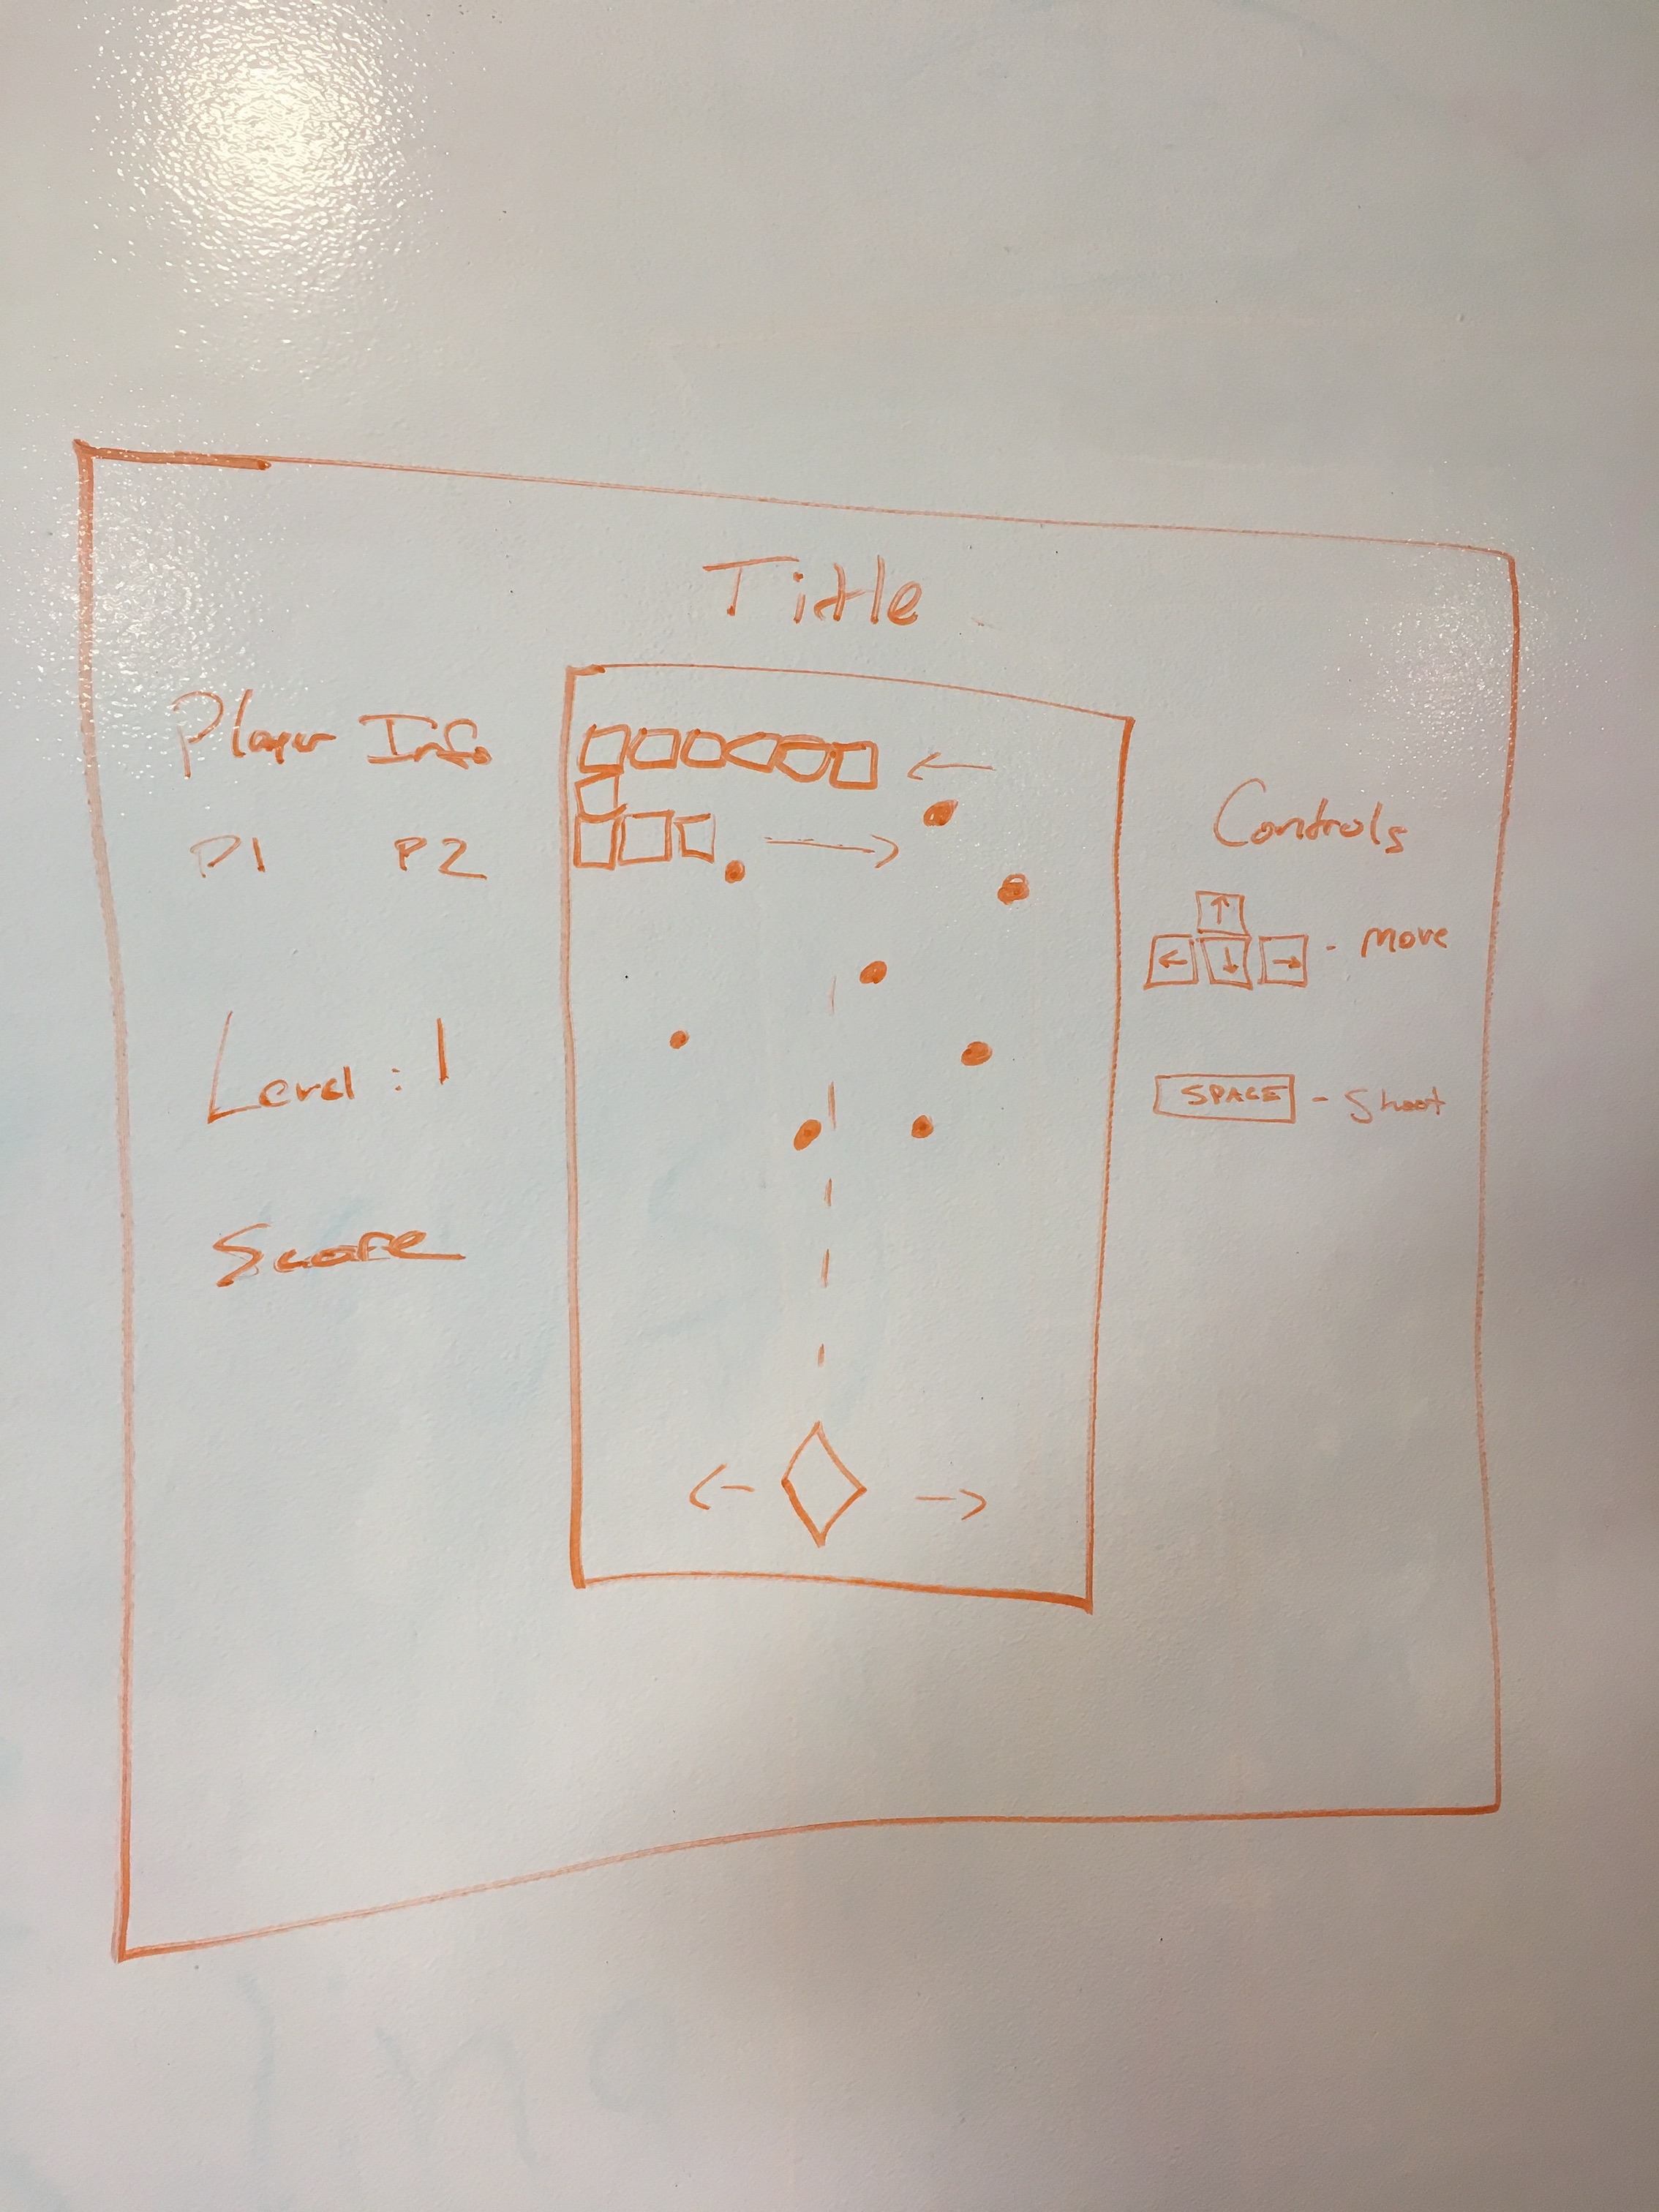 Title
Player Info
P1 P2
Level : 1
Score
Controls
↑
← ↓ → - move
SPACE - Shoot